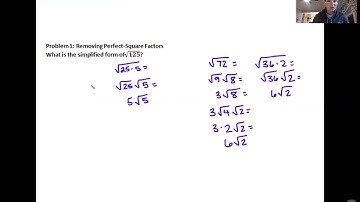 Problem 1: Removing Perfect-Square Factors
What is the simplified form of √125?
√25·5 =
√25 √5 =
5√5
√72 =
√9 √8 =
3√8 =
3√4 √2 =
3·2√2 =
6√2
√36·2 =
√36 √2 =
6√2